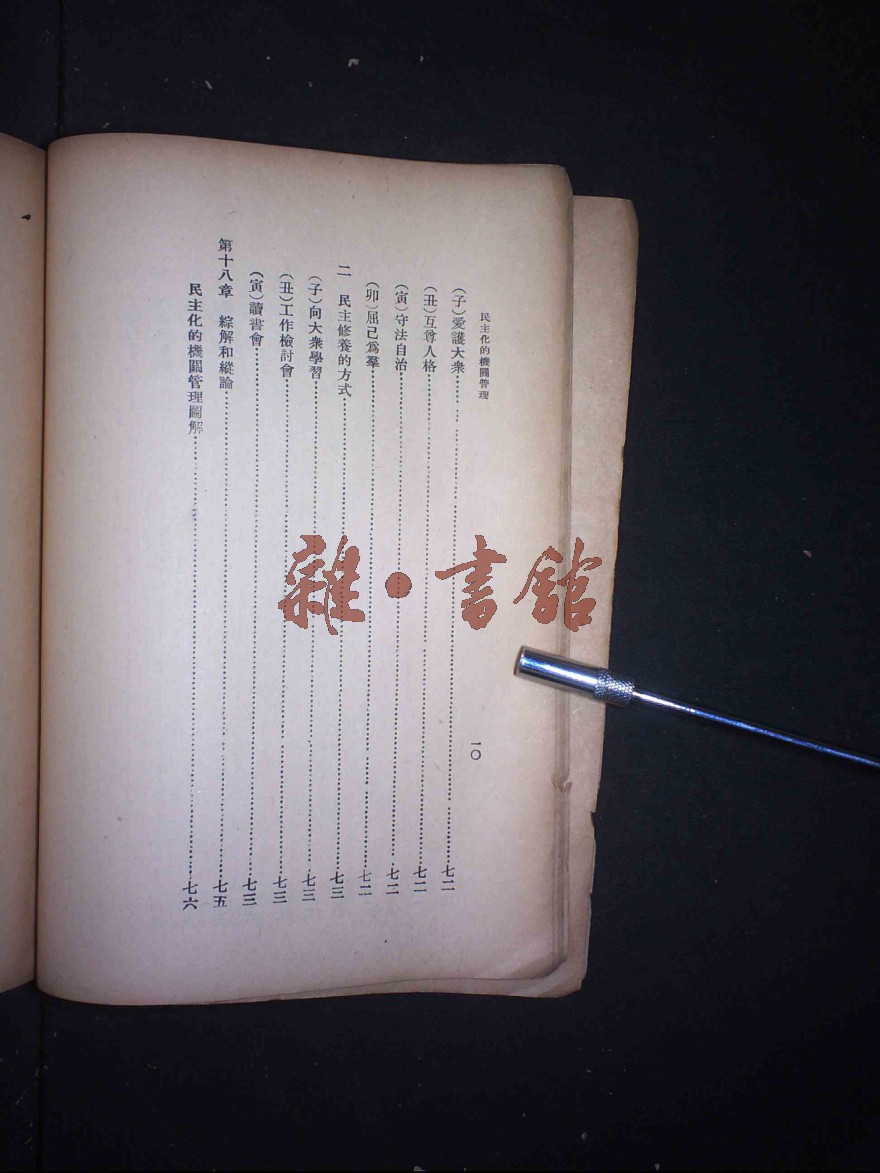 民主化的機關管理
一〇
（子）愛護大衆……七二
（丑）互尊人格……七二
（寅）守法自治……七二
（卯）屈己爲羣……七二
二　民主修養的方式……七三
（子）向大衆學習……七三
（丑）工作檢討會……七三
（寅）讀書會……七三
第十八章　綜解和縱論……七五
民主化的機關管理圖解……七六
雜·書館